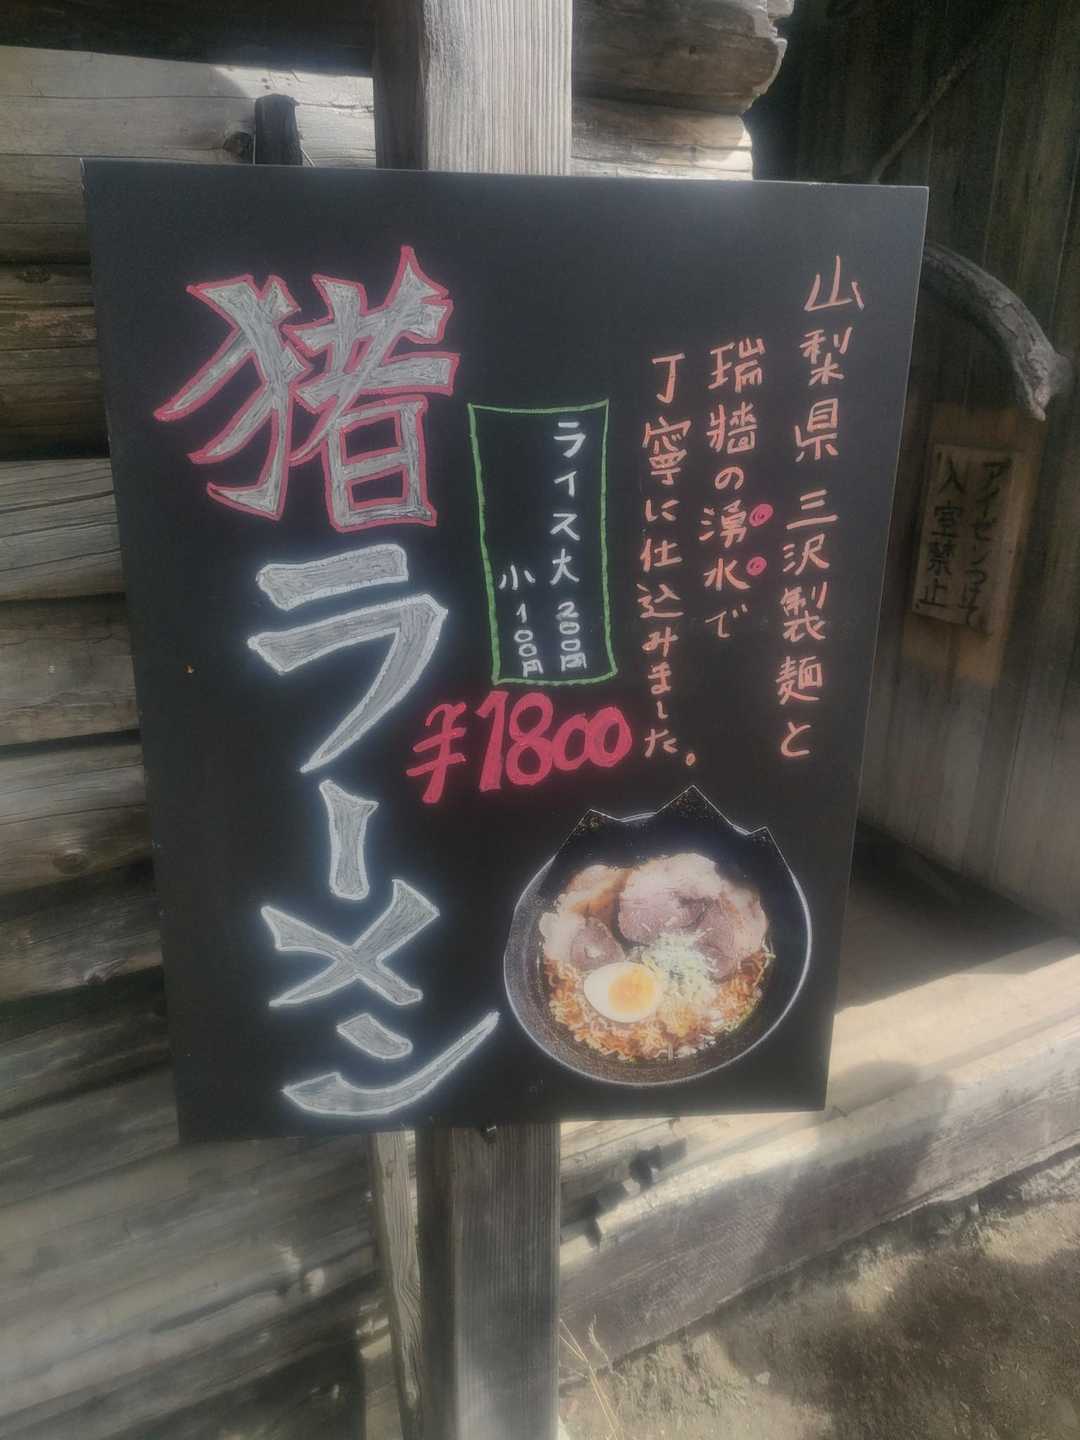 山梨県三沢製麺と
瑞牆の湧水で
丁寧に仕込みました。
ライス大200円
小100円
猪ラーメン
¥1800
アイゼンつけて
入室禁止